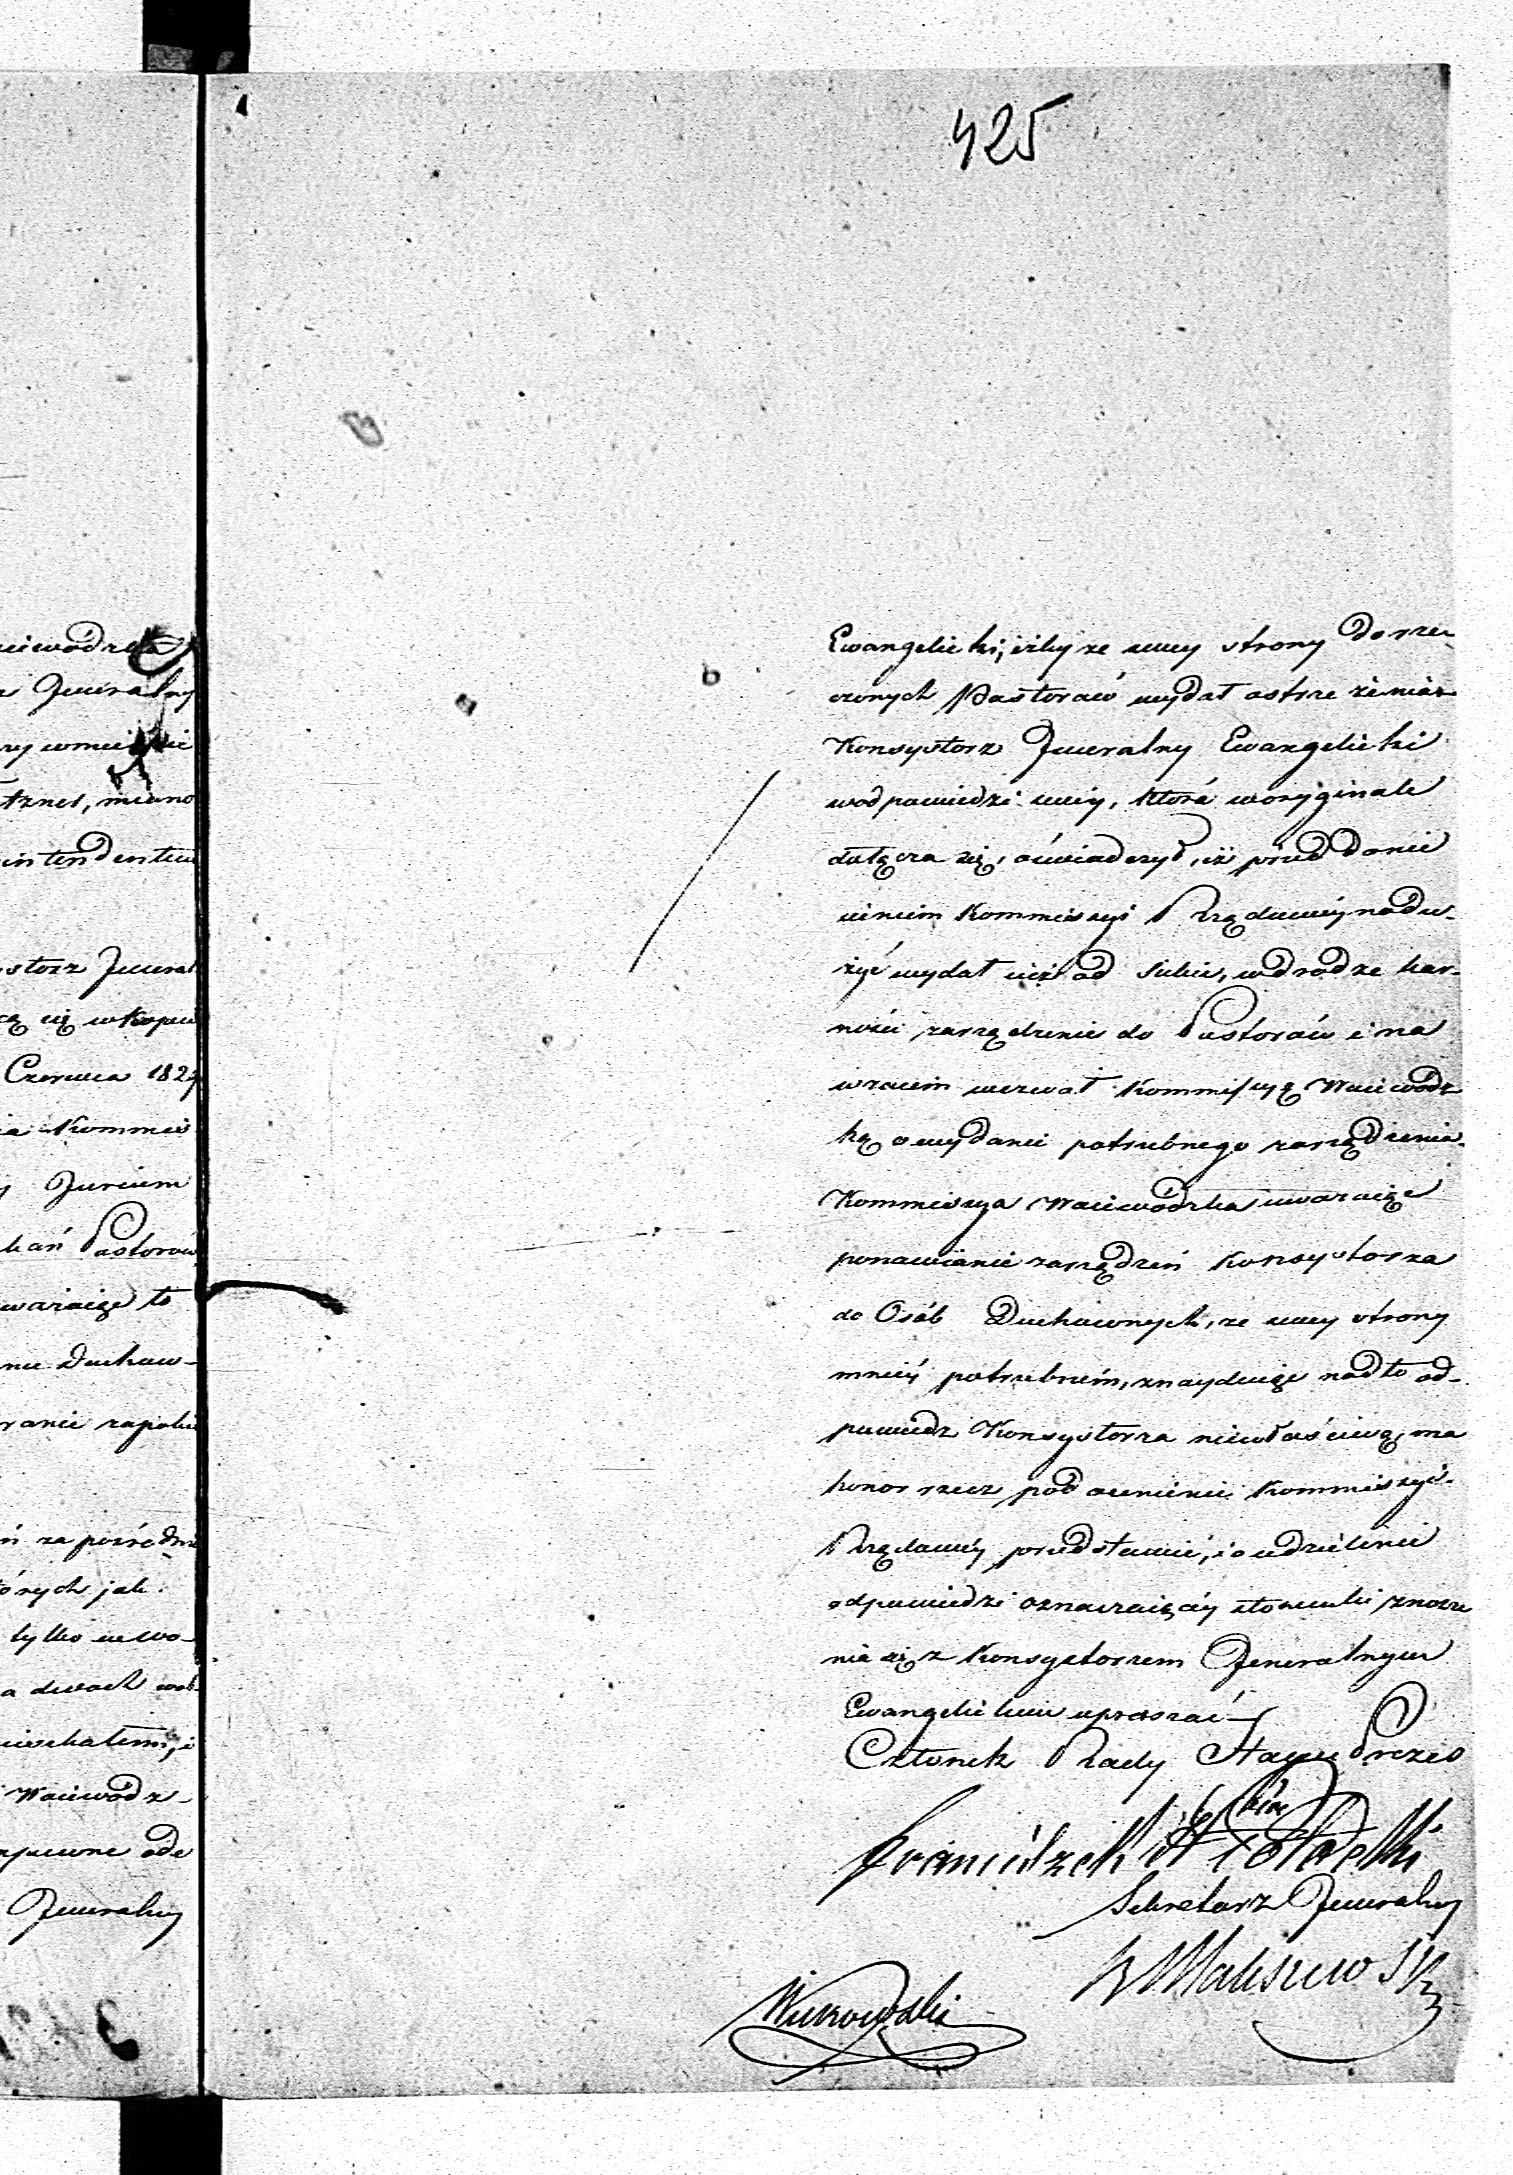 425
iewódzka
Jeneralny
intendentów
storz Jeneral
cą się w kopii
Czerwca 1829
ia Kommis
Pastorów
uważaiąc to
Duchow-
ń za pośredni
tórych jak
tylko
a dwoch
Woiewódz-
Jeneralny
Ewangelicki, iżby ze swey strony do rze-
czonych Pastorów wydał ostrzeżenia
Konsystorz Jeneralny Ewangelicki
w odpowiedzi swéy, która w oryginale
dołącza się, oświadczył, iż przed donie
sieniem Kommissyi Rządowéy nadu-
żyć wydał iuż od siebie, w drodze kar-
ności zarządzenie do Pastorów i na
wzaiem wezwał Kommissyą Woiewódz
ką o wydanie potrzebnego zarządzenia.
Kommissya Woiewódzka uważaiąc
ponawianie zarządzeń Konsystorza
do Osób Duchownych, ze swey strony
mniéy potrzebném, znayduiąc nadto od-
powiedz Konsystorza niewłaściwą, ma
honor rzecz pod ocenienie Kommissyi
Rządowéy przedstawić, i o udzielenie
odpowiedzi oznaczaiącéy stosunki znosze
nia się z Konsystorzem Jeneralnym
Ewangelickim upraszać
Członek Rady Stanu Prezes
Franciszek
Sekretarz Jeneralny
Maliszewski